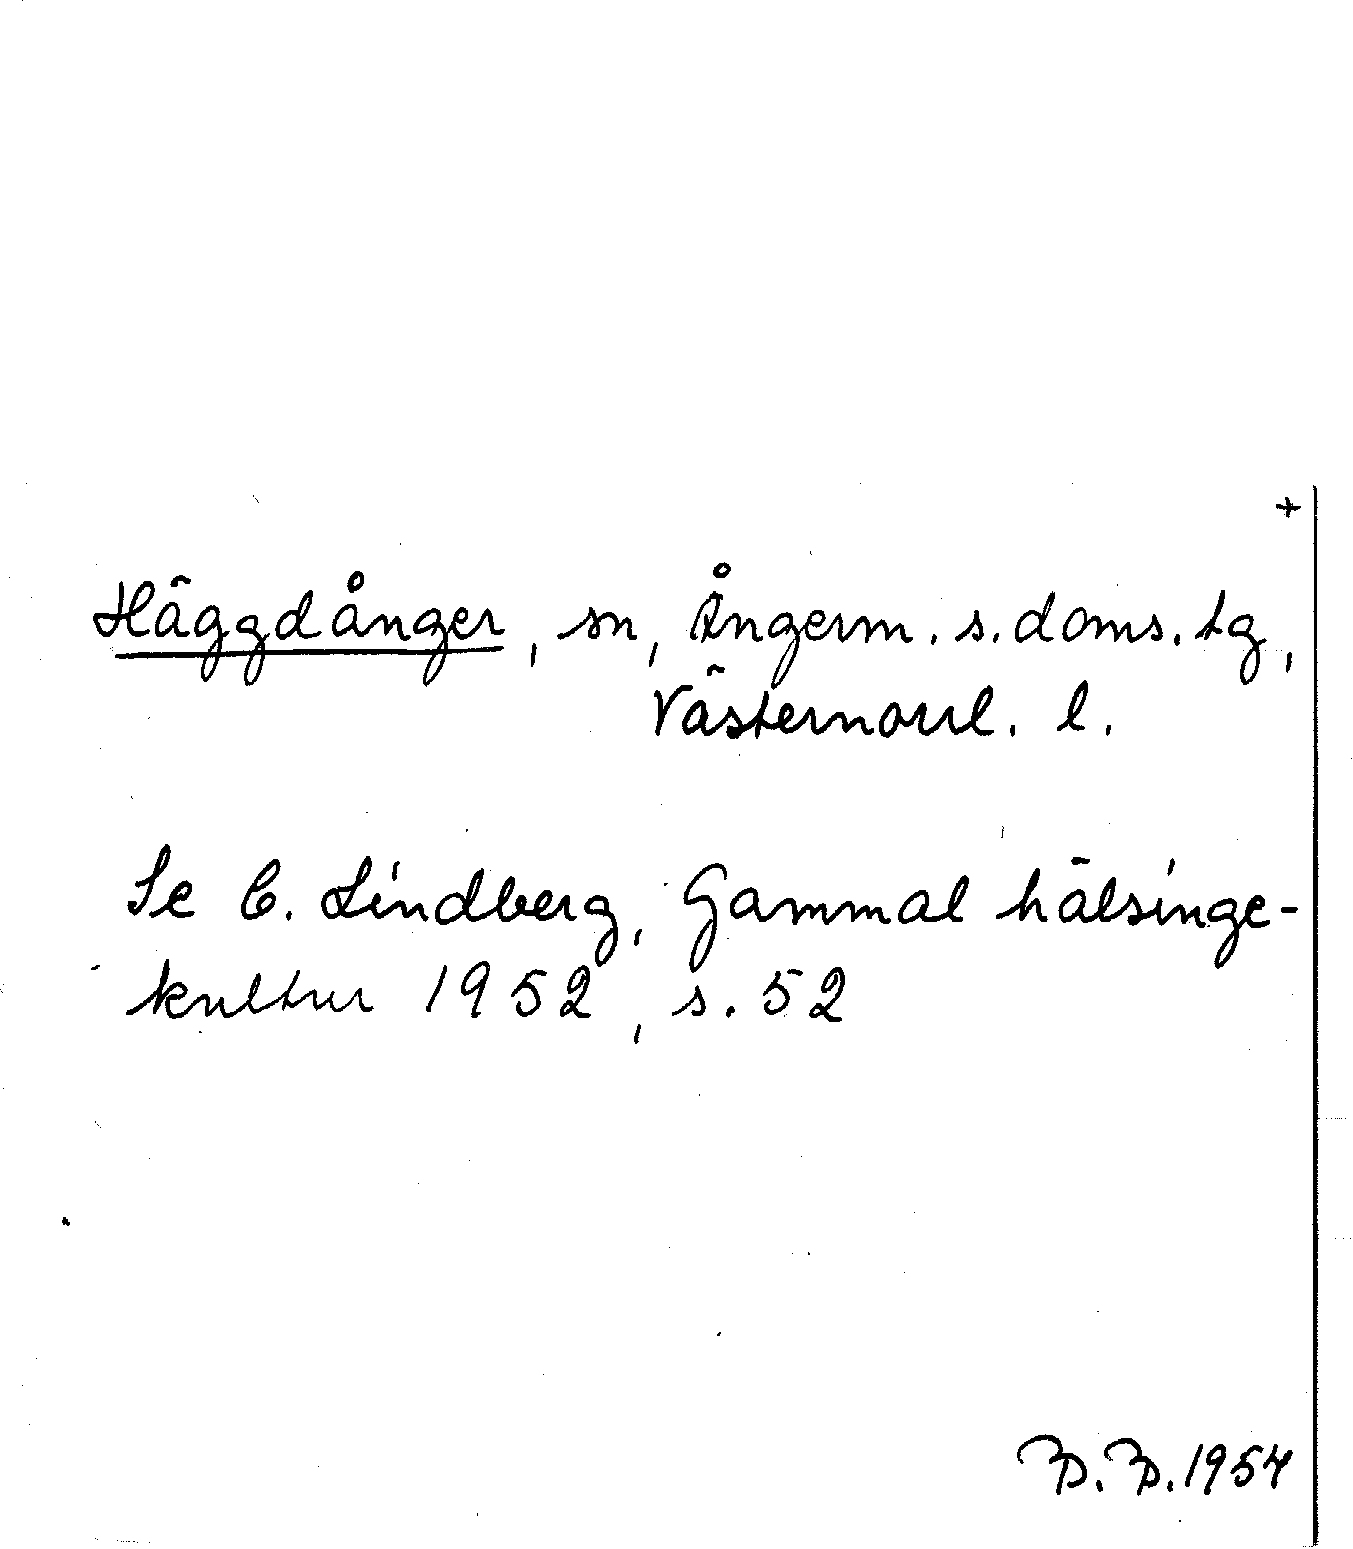 +
Häggdånger, sn, Ångerm. s. doms. tg,
Västernorrl. l.
Se C. Lindberg, Gammal hälsinge-
kultur 1952, s. 52
B.B. 1954